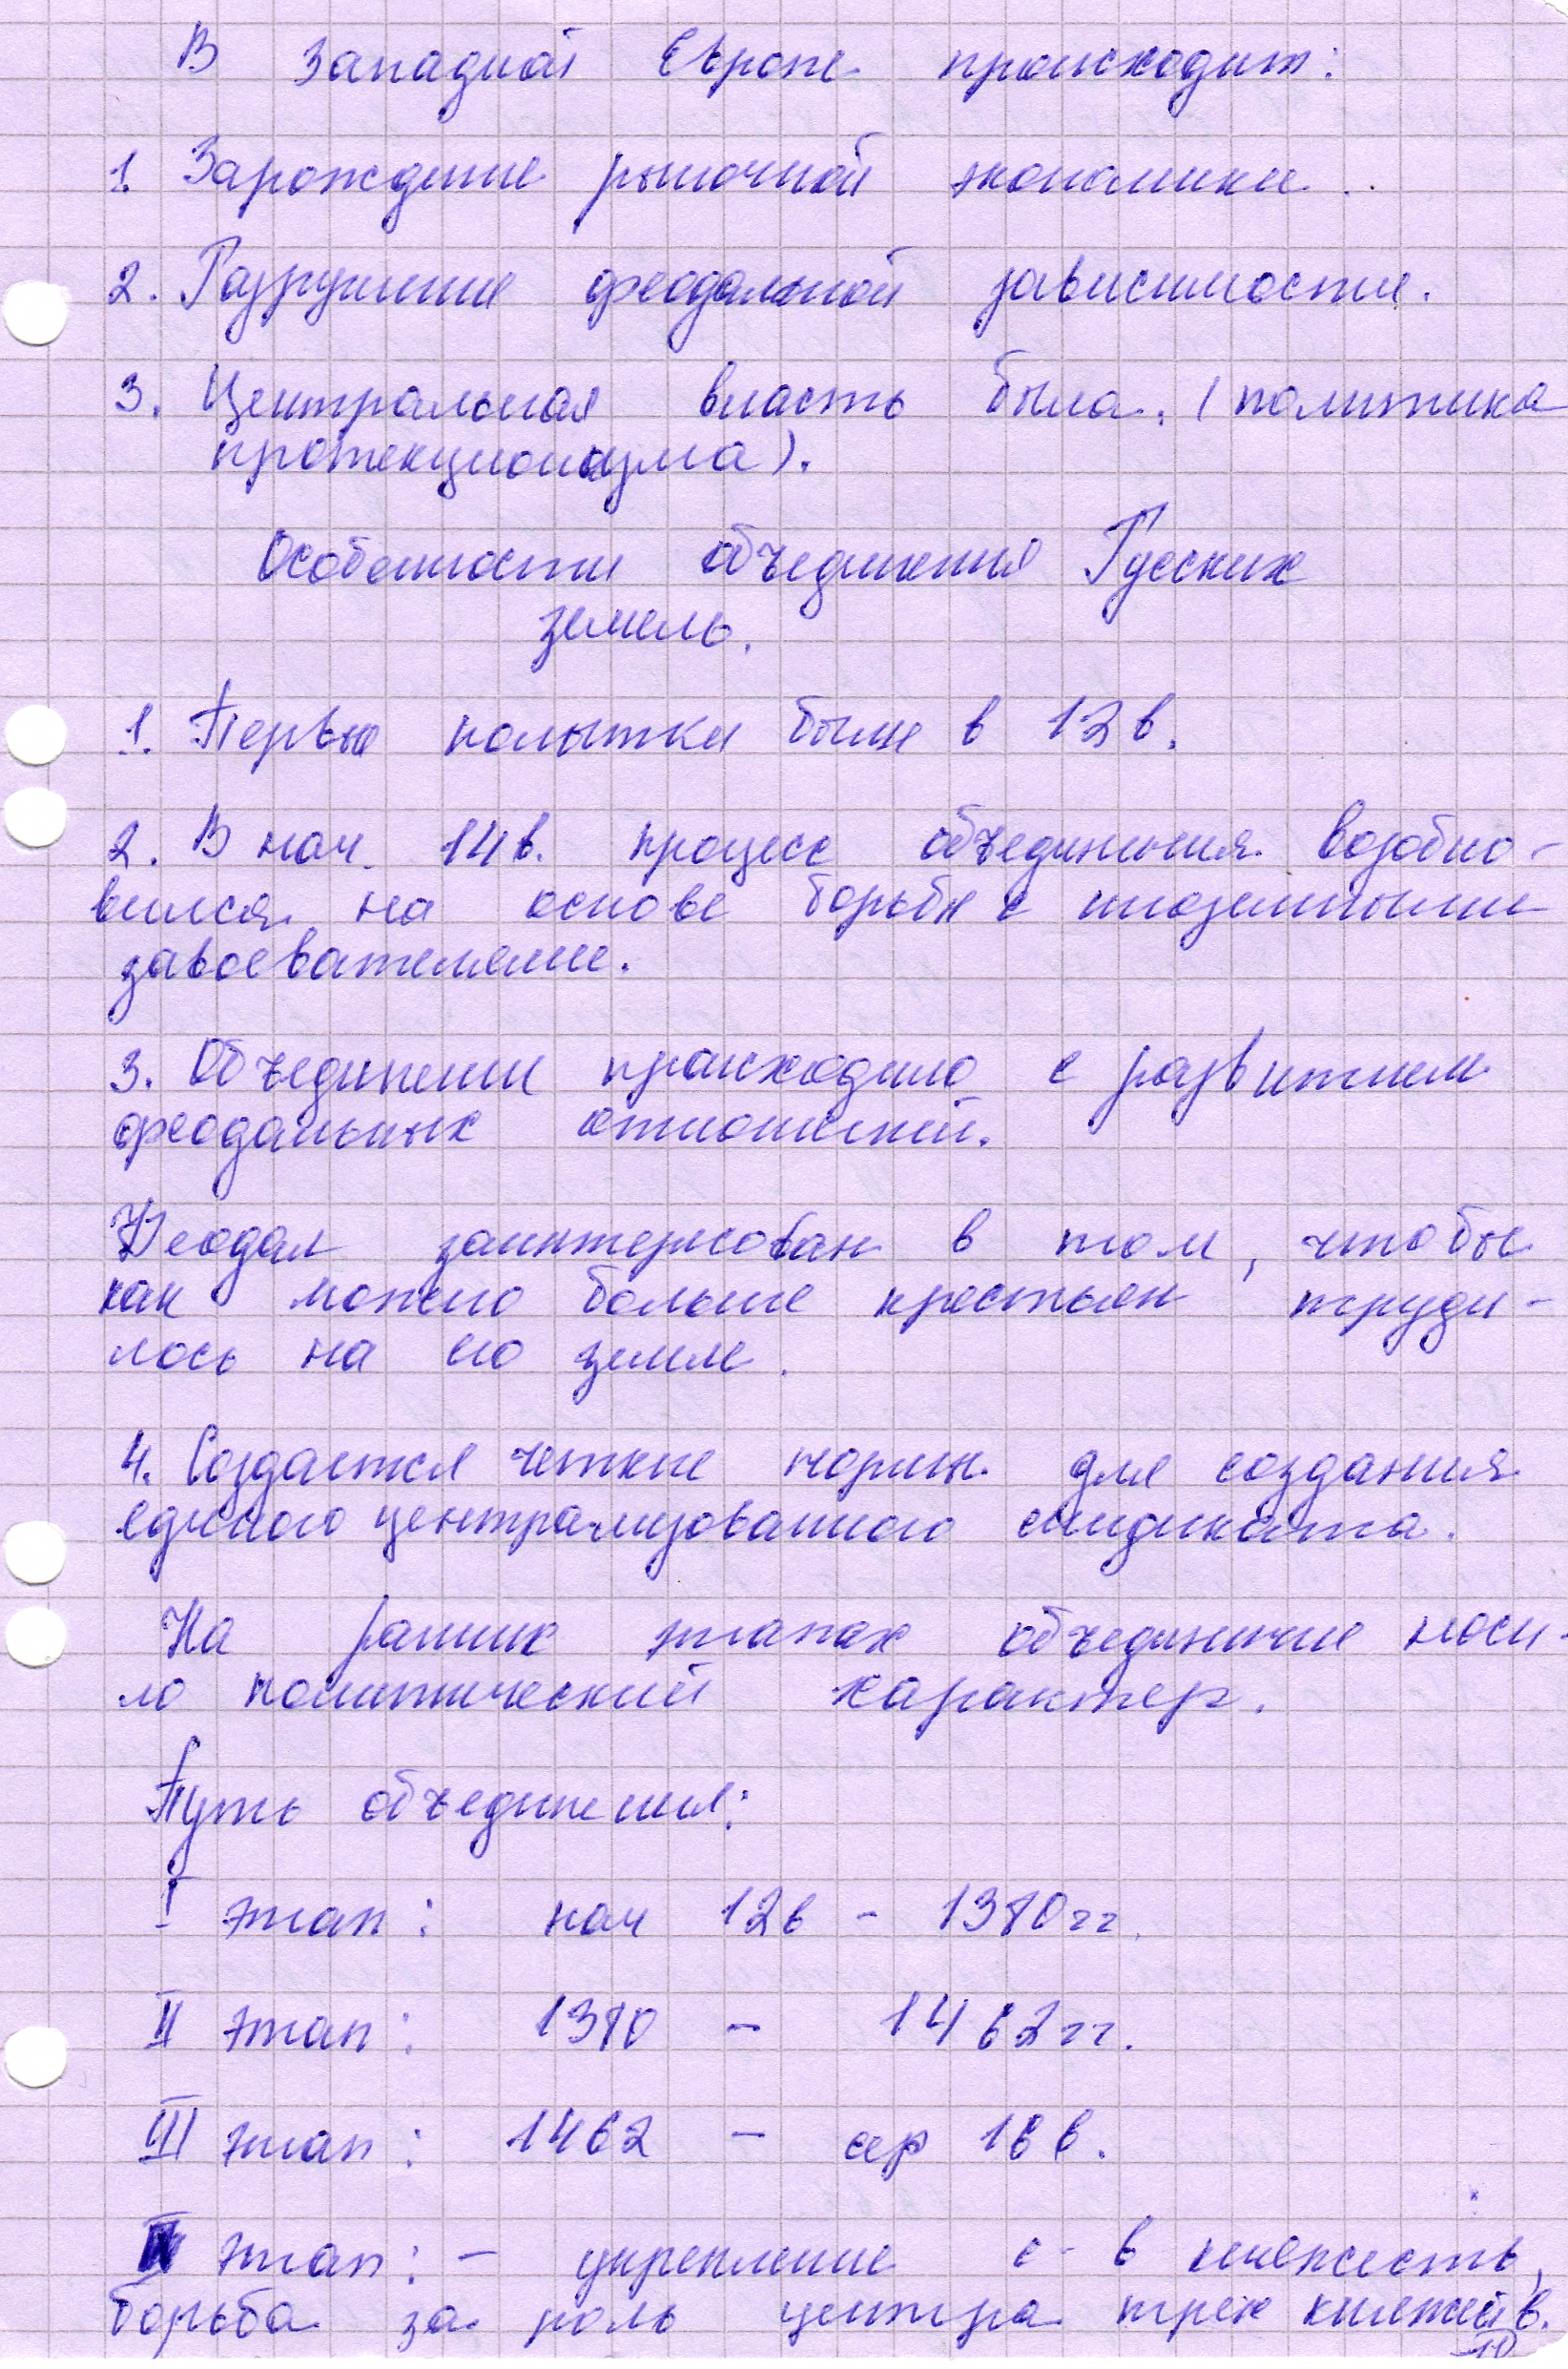 В Западной Европе происходит:
1. Зарождение рыночной экономики.
2. Разрушение феодальной зависимости.
3. Центральная власть была. (политика
протекционизма).
Особенности объединения Русских
земель.
1. Первые попытки были в 12 в.
2. В нач. 14 в. процесс объединения возобно-
вился на основе борьбы с иноземными
завоевателями.
3. Объединении происходило с развитием
феодальных отношений.
Феодал заинтересован в том, чтобы
как можно больше крестьян труди-
лось на его земле.
4. Создается четкие нормы для создания
единого централизованного синдиката.
На ранних этапах объединение носи-
ло политический характер.
Путь объединения:
I этап: нач 12в - 1380гг.
II этап: 1380 - 1462гг.
III этап: 1462 - сер 16 в.
этап: - укрепление с- в княжеств,
борьба за роль центра трех княжеств.
10